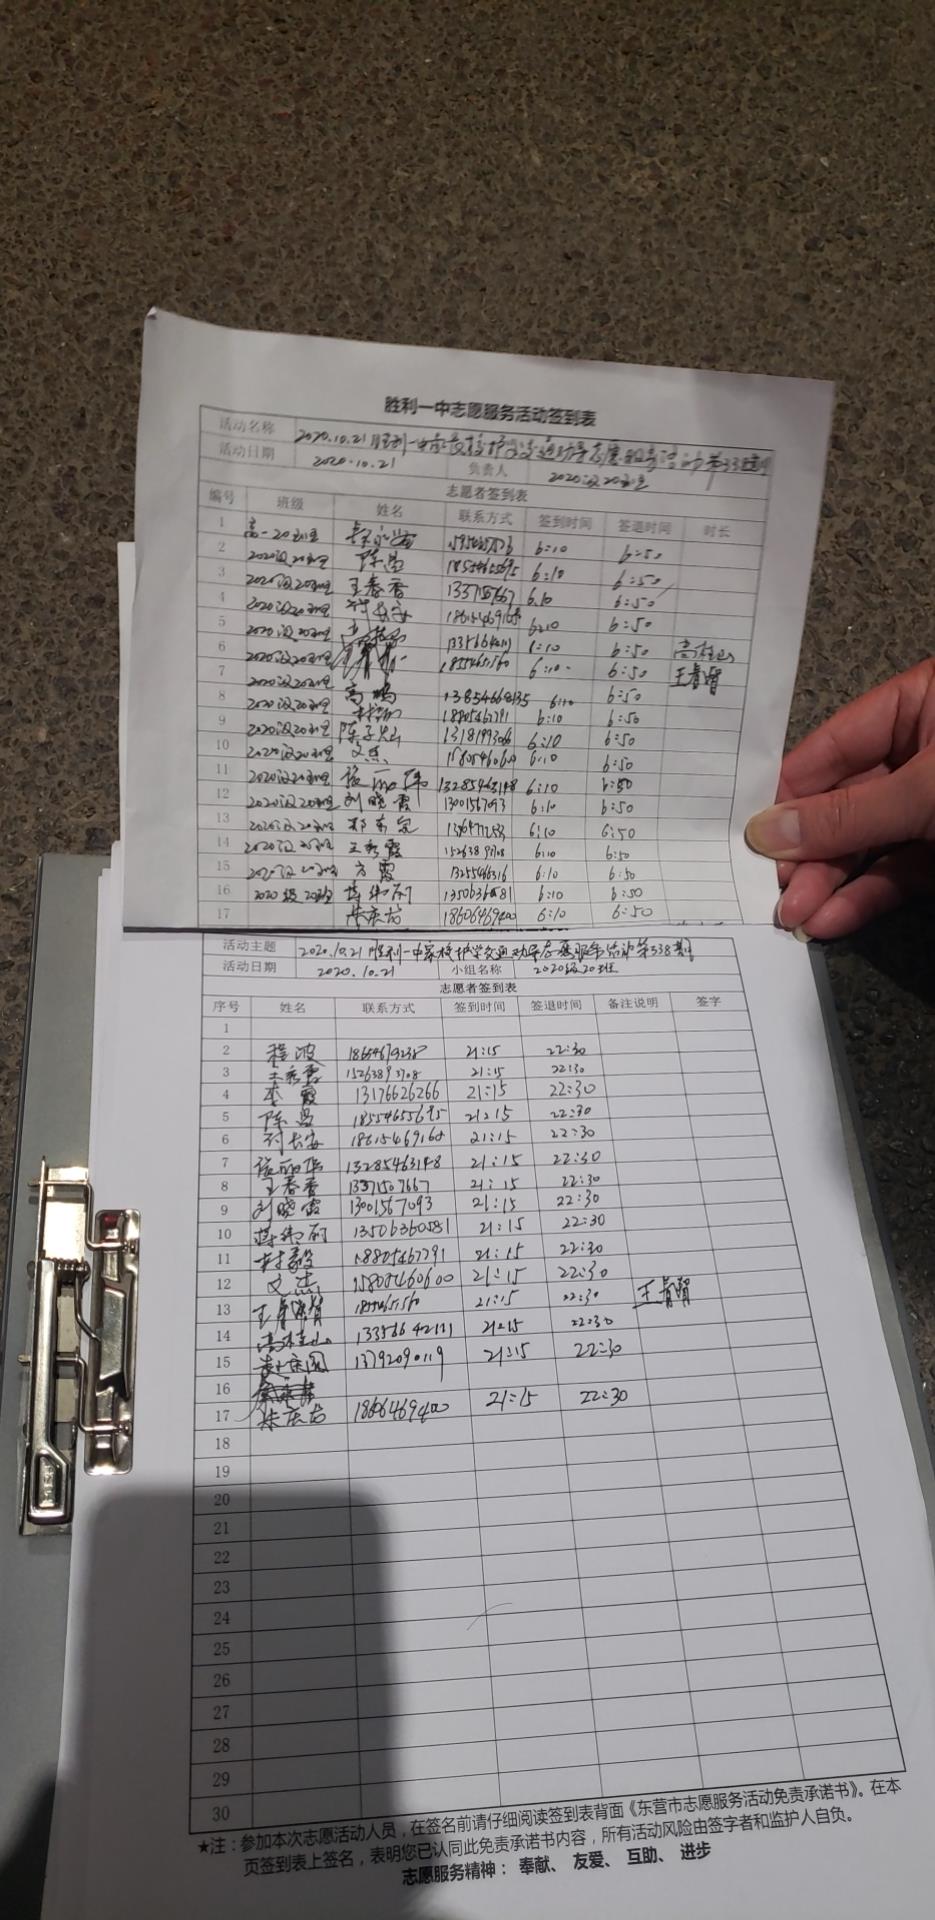 胜利一中志愿服务活动签到表
活动名称 2020.10.21胜利一中家校护学交通劝导志愿服务活动第338期
活动日期 2020.10.21 负责人 2020级20班
志愿者签到表
编号 班级 姓名 联系方式 签到时间 签退时间 时长
1 高一20班 6:10 6:50
2 2020级20班 陈昌 18554655695 6:10 6:50
3 2020级20班 王春香 6:10 6:50
4 2020级20班 付长安 18615469168 6:10 6:50
5 2020级20班 6:10 6:50 高桂山
6 2020级20班 6:10 6:50 王春智
7 2020级20班 高鹏 13854668135 6:10 6:50
8 2020级20班 18805467791 6:10 6:50
9 2020级20班 6:10 6:50
10 2020级20班 文杰 6:10 6:50
11 2020级20班 13285463148 6:10 6:50
12 2020级20班 刘晓霞 13001567093 6:10 6:50
13 2020级20班 6:10 6:50
14 2020级20班 王秀霞 15263892708 6:10 6:50
15 2020级20班 方霞 13255466316 6:10 6:50
16 2020级20班 13506360581 6:10 6:50
17 18606469400 6:10 6:50
活动主题 2020.10.21胜利一中家校护学交通劝导志愿服务活动第338期
活动日期 2020.10.21 小组名称 2020级20班
志愿者签到表
序号 姓名 联系方式 签到时间 签退时间 备注说明 签字
1
2 程波 18654679238 21:15 22:30
3 王秀霞 15263892708 21:15 22:30
4 李霞 13176626266 21:15 22:30
5 陈昌 18554655695 21:15 22:30
6 付长安 18615469168 21:15 22:30
7 13285463148 21:15 22:30
8 王春香 13371507667 21:15 22:30
9 刘晓霞 13001567093 21:15 22:30
10 13506360581 21:15 22:30
11 18805467791 21:15 22:30
12 文杰 15805460600 21:15 22:30
13 21:15 22:30 王春智
14 高桂山 13356642111 21:15 22:30
15 13792090119 21:15 22:30
16
17 18606469400 21:15 22:30
18
19
20
21
22
23
24
25
26
27
28
29
30
★注：参加本次志愿活动人员，在签名前请仔细阅读签到表背面《东营市志愿服务活动免责承诺书》。在本
页签到表上签名，表明您已认同此免责承诺书内容，所有活动风险由签字者和监护人自负。
志愿服务精神： 奉献、 友爱、 互助、 进步